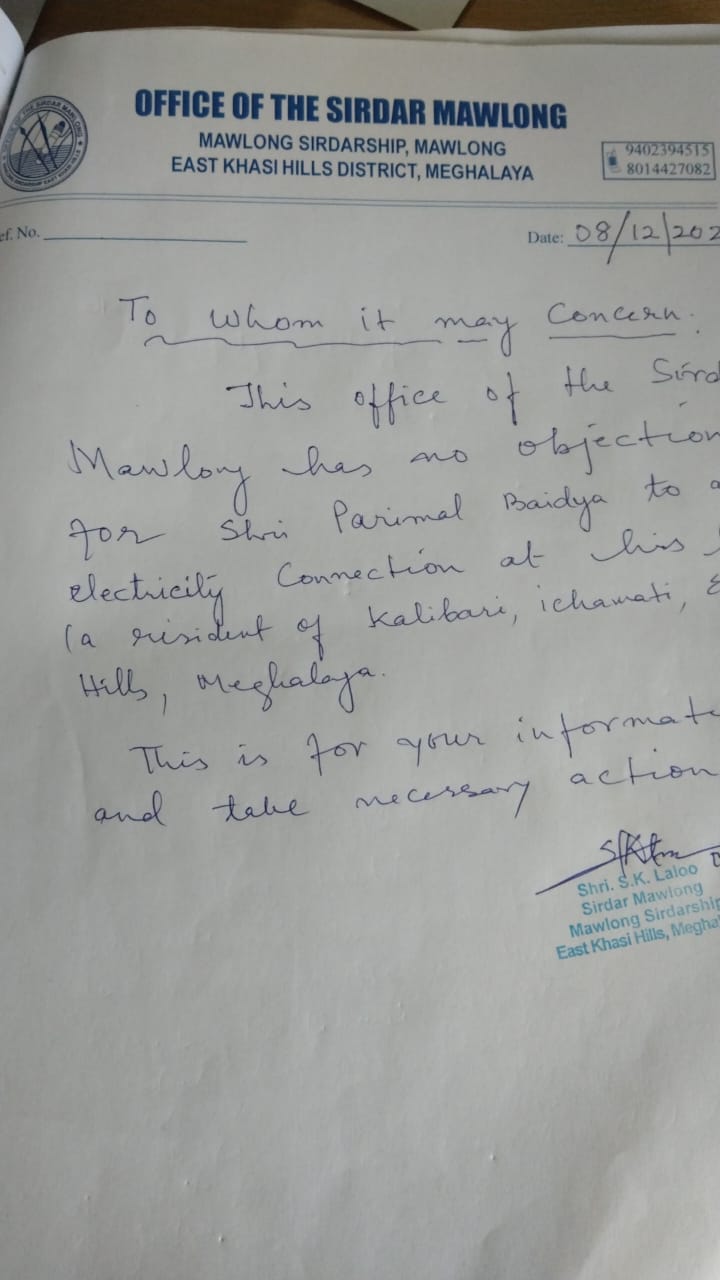 OFFICE OF THE SIRDAR MAWLONG
MAWLONG SIRDARSHIP, MAWLONG
EAST KHASI HILLS DISTRICT, MEGHALAYA
9402394515
8014427082
ef. No.
Date: 08/12/202
To whom it may Concern.
This office of the Sird
Mawlong has no objection
for Shri Parimal Baidya to a
electricity Connection at his
(a risident of Kalibari, ichamati, E
Hills, Meghalaya.
This is for your informat
and take necessary action
Shri. S.K. Laloo
Sirdar Mawlong
Mawlong Sirdarship
East Khasi Hills, Megha